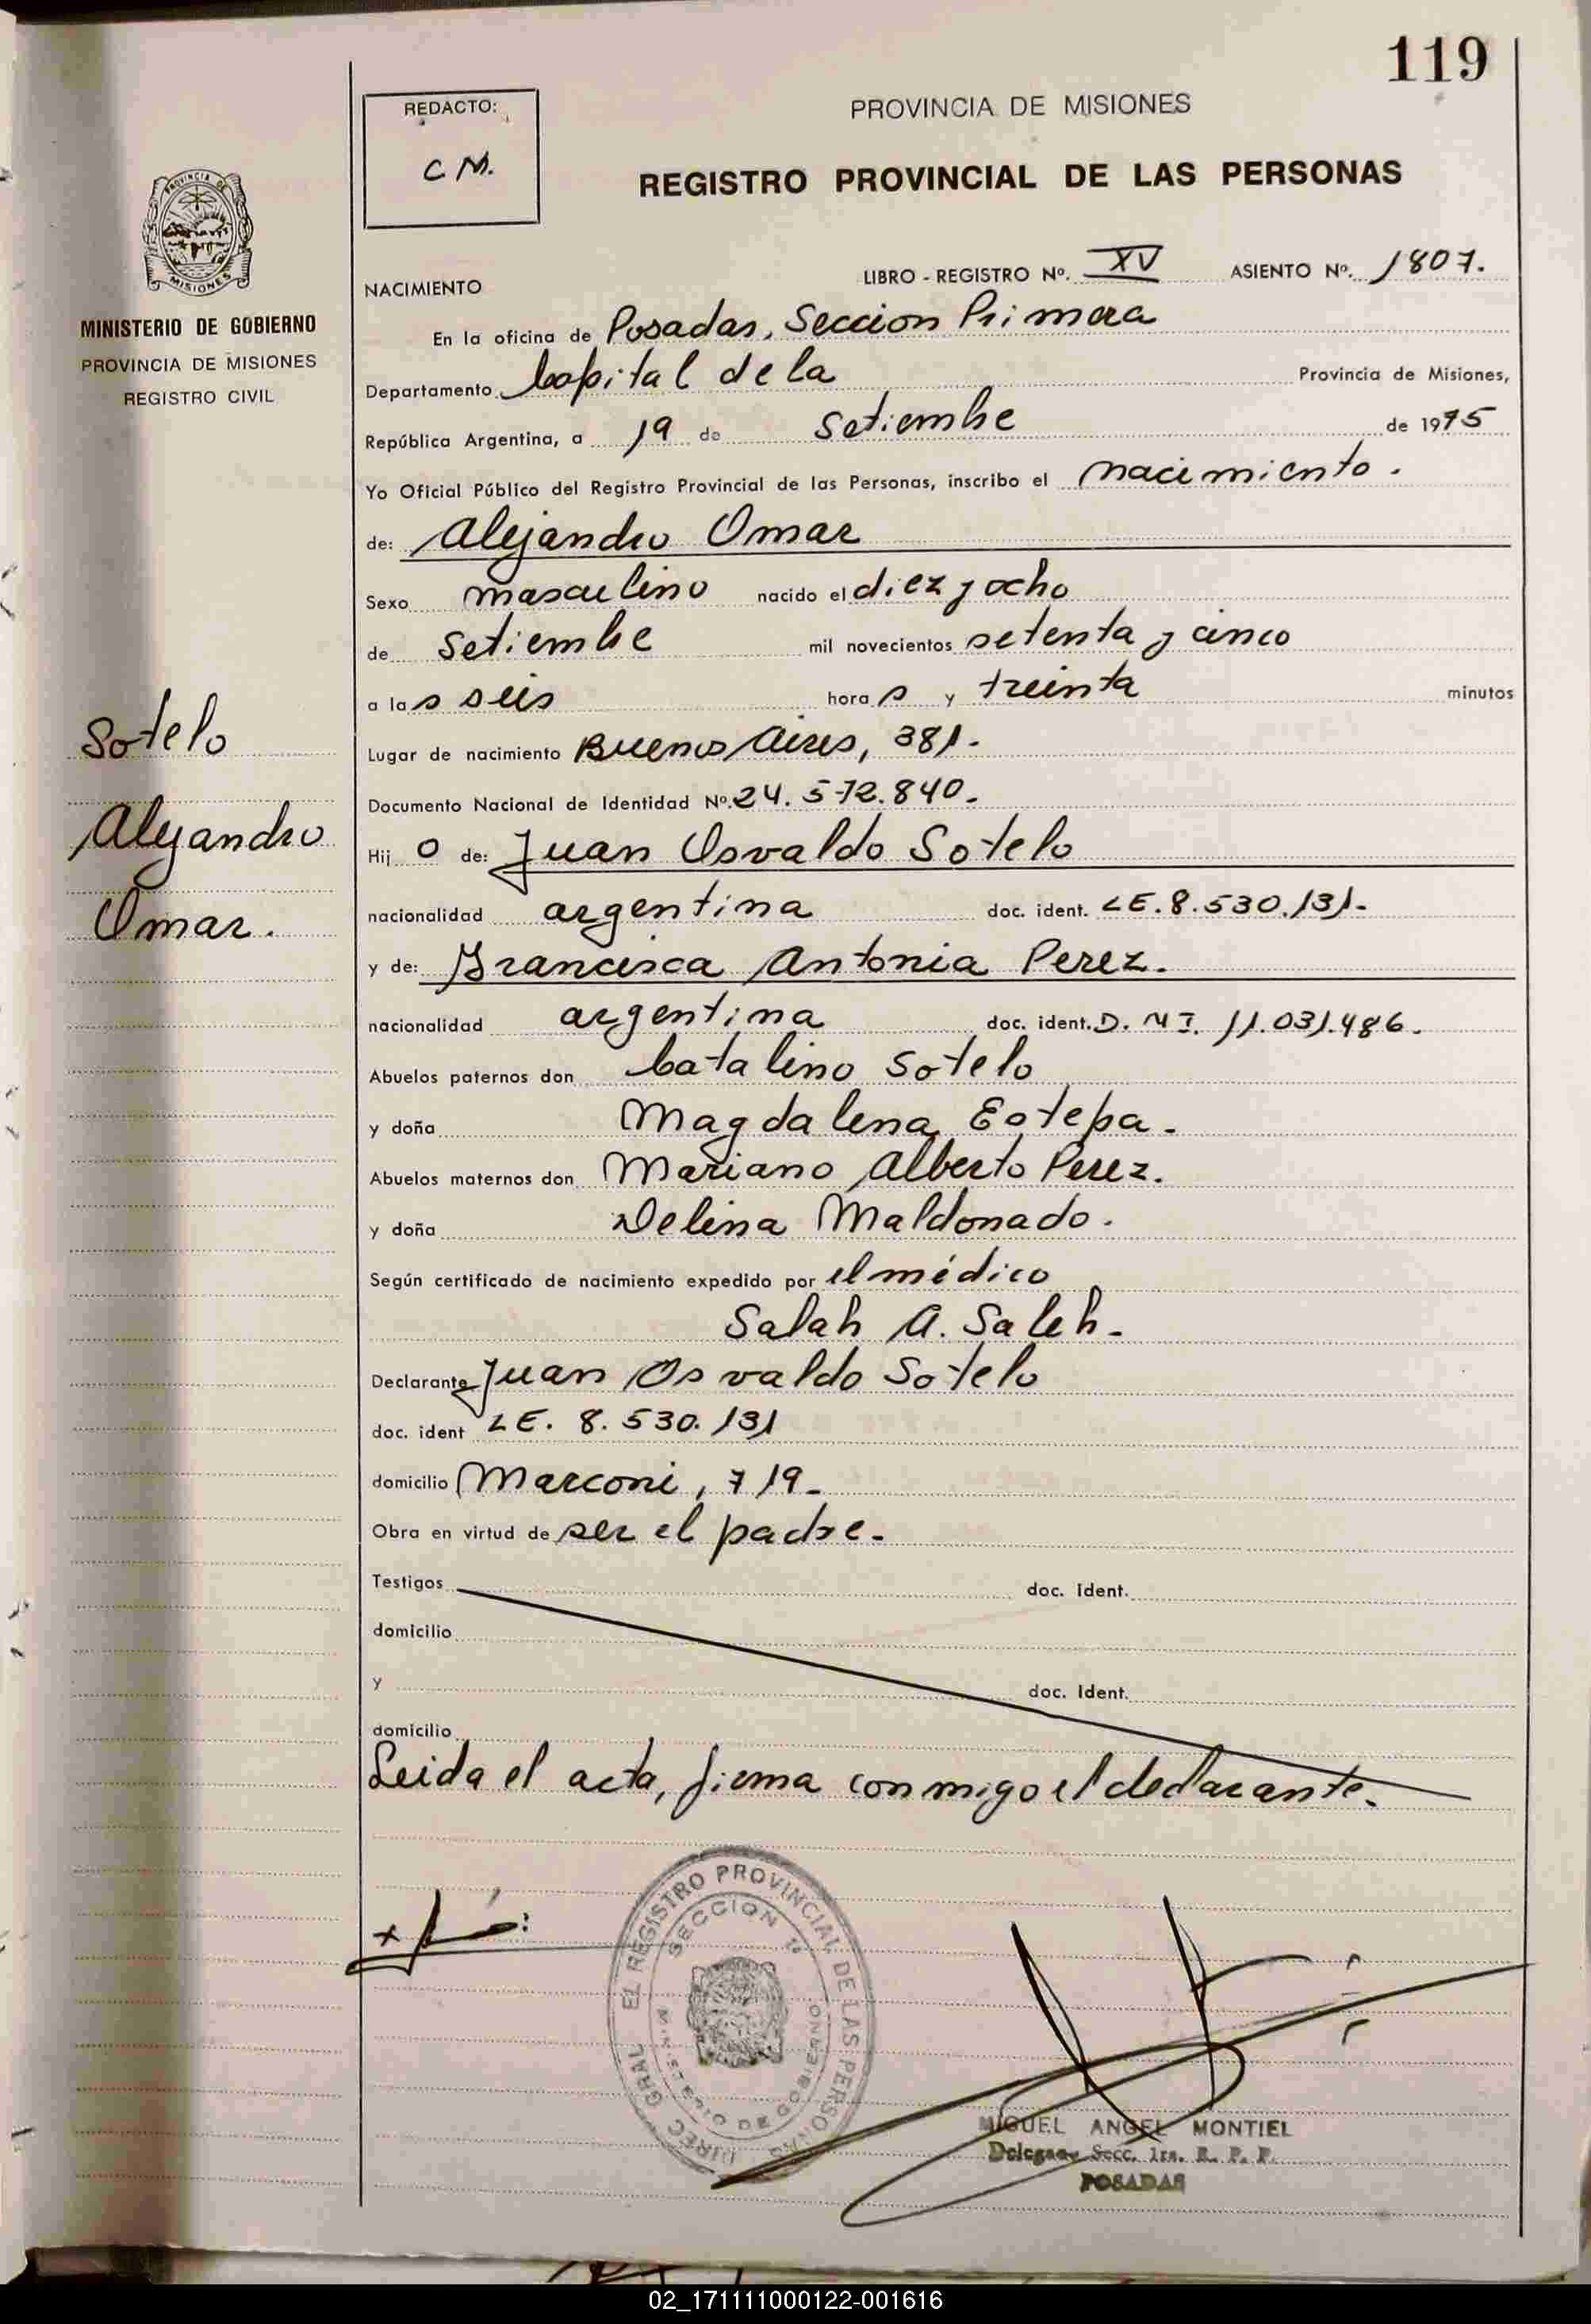 119
REDACTO:
C M.
PROVINCIA DE MISIONES
REGISTRO PROVINCIAL DE LAS PERSONAS
PROVINCIA DE
MISIONES
MINISTERIO DE GOBIERNO
PROVINCIA DE MISIONES
REGISTRO CIVIL
Sotelo
Alejandro
Omar.
LIBRO - REGISTRO Nº. XV ASIENTO Nº. 1807.
NACIMIENTO
En la oficina de Posadas, Seccion Primera
Departamento Capital de la Provincia de Misiones,
República Argentina, a 19 de Setiembre de 1975
Yo Oficial Público del Registro Provincial de las Personas, inscribo el nacimiento.
de: Alejandro Omar
Sexo masculino nacido el diez y ocho
de Setiembre mil novecientos setenta y cinco
a las seis horas y treinta minutos
Lugar de nacimiento Buenos Aires, 381.
Documento Nacional de Identidad Nº. 24.572.840.
Hijo de: Juan Osvaldo Sotelo
nacionalidad argentina doc. ident. LE. 8.530.131.
y de: Francisca Antonia Perez.
nacionalidad argentina doc. ident. D. N I. 11.031.486.
Abuelos paternos don Catalino Sotelo
y doña Magdalena Estepa.
Abuelos maternos don Mariano Alberto Perez.
y doña Delina Maldonado.
Según certificado de nacimiento expedido por el médico
Salah A. Saleh.
Declarante Juan Osvaldo Sotelo
doc. ident LE. 8.530.131
domicilio Marconi, 719.
Obra en virtud de ser el padre.
Testigos doc. Ident.
domicilio
y doc. Ident.
domicilio
Leida el acta, firma conmigo el declarante.
DIREC. GRAL EL REGISTRO PROVINCIAL DE LAS PERSONAS
SECCION 1ª
MINISTERIO DE GOBIERNO
MIGUEL ANGEL MONTIEL
Delegado Secc. 1ra. R. P. P.
POSADAS
02_171111000122-001616